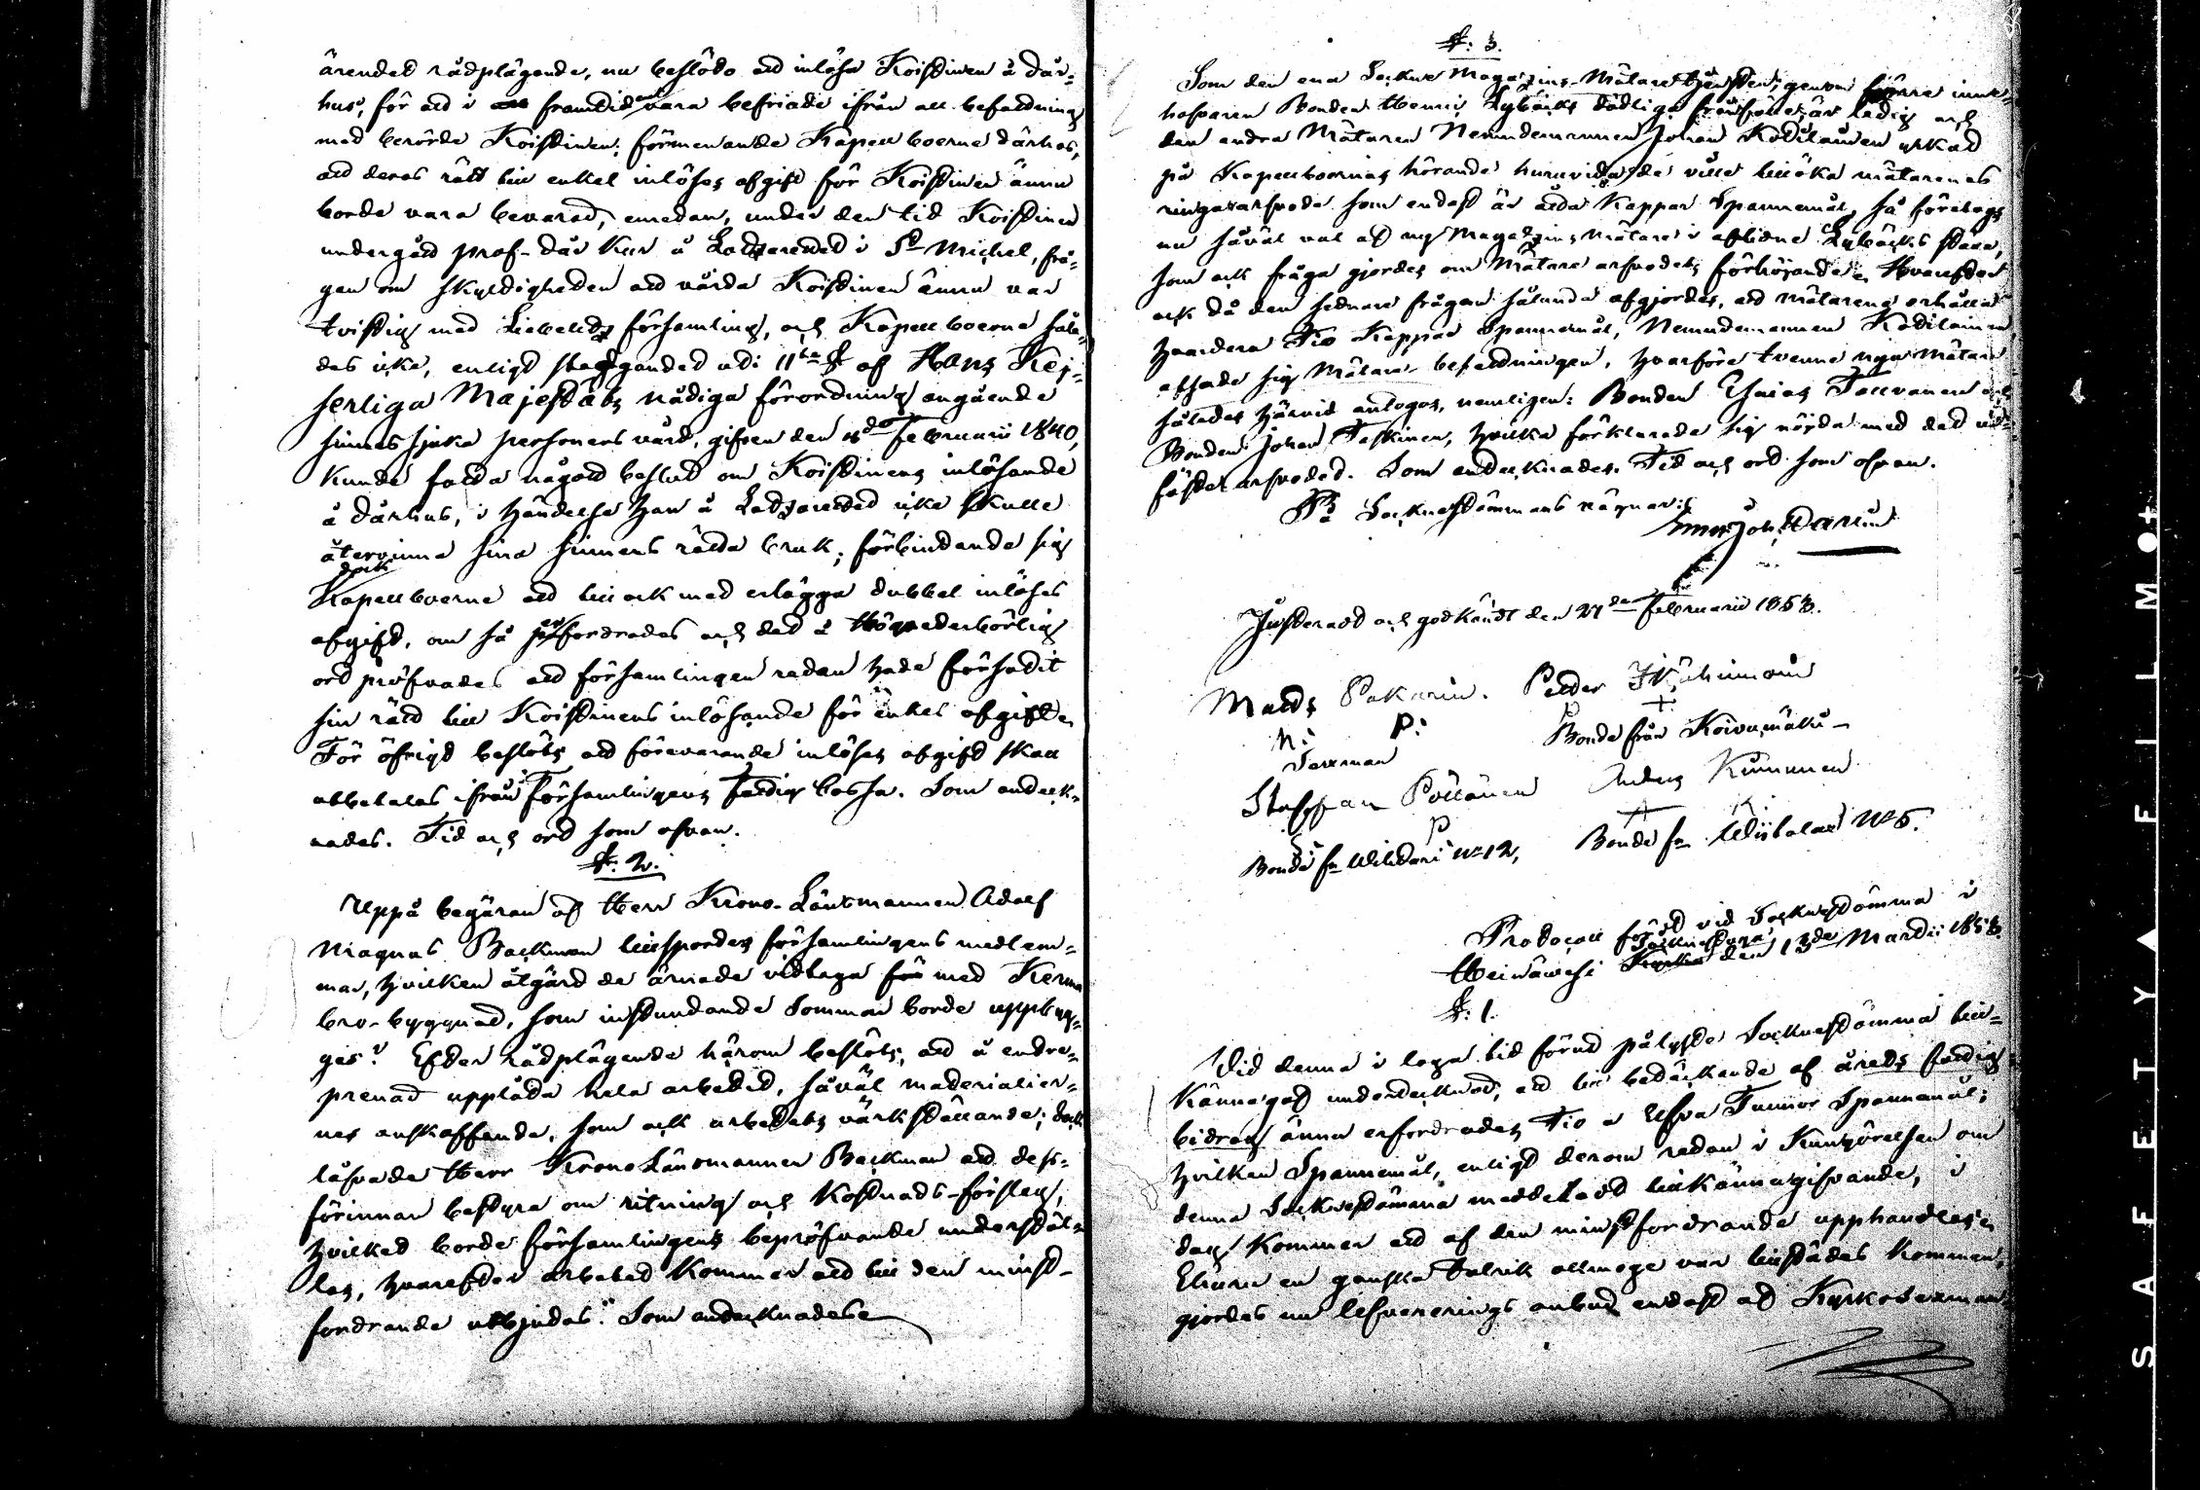 ärendet rådplägande, nu beslöto att inlösa Koistinen å dår-
hus, för att i framtiden vara befriade ifrån all befattning
med berörde Koistinen; förmenande Kapellboerne därhos,
att deras rätt till enkel inlöses afgift för Koistinen ännu
borde vara bevarad, emedan, under den tid Koistinen
undergått prof-dår kur å Lazarettet i St Michel, frå-
gan om skyldigheten att vårda Koistinen ännu var
tvistig med Libelits församling, och Kapellboerne såle-
des icke, enligt stadgandet uti 11te § af Hans Kej-
serliga Majestäts nådiga förordning angående
sinnessjuka personers vård, gifven den Februarii 1840,
kunde fatta något beslut om Koistinens inlösande
å dårhus, i händelse han å Lazarettet icke skulle
återvinna sina sinnens rätta bruk; förbindande sig
dock
Kapellboerne att till ock med erlägga dubbel inlöses
afgift, om så erfordrades och det å Högvederbörlig
ort pröfvades att församlingen redan hade försutit
sin rätt till Koistinens inlösande för enkel afgift.
För öfrigt beslöts att förevarande inlöses afgift skall
utbetalas ifrån Församlingens fattig cassa. Som anteck-
nades. Tid och ort som ofvan.
§: 2.
Uppå begäran af Herr Krono-Länsmannen Adolf
Magnus Backman tillspordes församlingens medlem-
mar, hvilken åtgärd de ärnade vidtaga med Kerma
bro-byggnad, som instundande Sommar borde uppbyg-
gas? Efter rådplägande härom beslöts, att å entre-
prenad upplåta hela arbetet, såväl materialier-
nes anskaffande, som ock arbetets värkställande; dock
låfvade Herr Krono Länsmannen Backman att dess-
förinnan bestyra om ritning och Kostnads-förslag,
hvilket borde församlingens bepröfvande underställ-
las, hvarefter arbetet kommer att till den minst-
fordrande utbjudas. Som antecknades
§: 3.
Som den ena Sockne Magazins-Mätare tjensten, genom förre inne-
hafvaren Bonden Henric Lybäcks dödliga frånfälle, är ledig och
den andra Mätaren Nemndemannen Johan Kotilainen yrkat
på Kapellboernas hörande huruvida de ville tillöka mätarenes
ringa arfvode som endast är åtta Kappar Spannemål, så företogs
nu såväl val af ny Magazins Mätare i aflidne Lybäcks ställe,
som ock fråga gjordes om Mätare arfvodets förhöjande. Hvarefter
ock då den sednare frågan sålunda afgjordes, att mätarene erhålla
hvardera Tio Kappar Spannemål, Nemndemannen Kotilainen
afsade sig Mätare-befattningen, hvarföre tvenne nya Mätare
således härvid antogos, nemligen: Bonden Esaias Tolvanen och
Bonden Johan Taskinen, hvilka förklarade sig nöjda med det ut-
fäste arfvodet. Som antecknades. Tid och ort som ofvan.
På Socknestämmans vägnar:
Justeradt och godkändt den 27de Februarii 1853.
Matts Pakarin. Petter Ikäheimoin
N: P:
Sexman Bonde från Koivumäki
Staffan Pöllänen Anders Kinnunen
S P A K
Bonde fr Wihtari No 12, Bonde fr Wiibalax No 5.
Protocoll fördt vid Sockenstämma i
Sockenstuga
Heinäwesi Kyrka den 13de Martii 1853.
§: 1.
Vid denna i laga tid förut pålyste Socknestämma till-
kännagaf undertecknad, att till betäckande af årets fattig
bidrag ännu erfordrades Tio a Elfva Tunnor Spannemål;
hvilken Spannemål, enligt derom redan i Kungörelsen om
denna Socknestämma meddeladt tillkännagifvande, i
dag kommer att af den minstfordrande upphandlas.
Ehuru en ganska talrik allmoge var tillstädes kommen,
gjordes nu lefvererings anbud endast af Kyrkosexman-